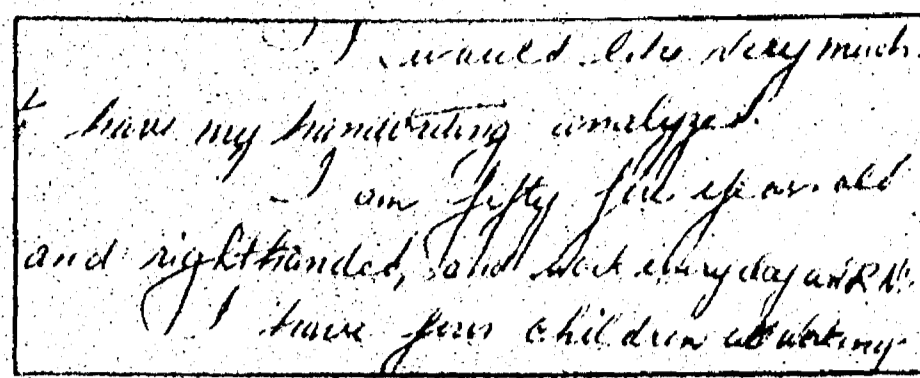 I would like very much
t have my handwriting analyzed.
I am fifty five years old
and righthanded, and work every day as R N.
I have four children all